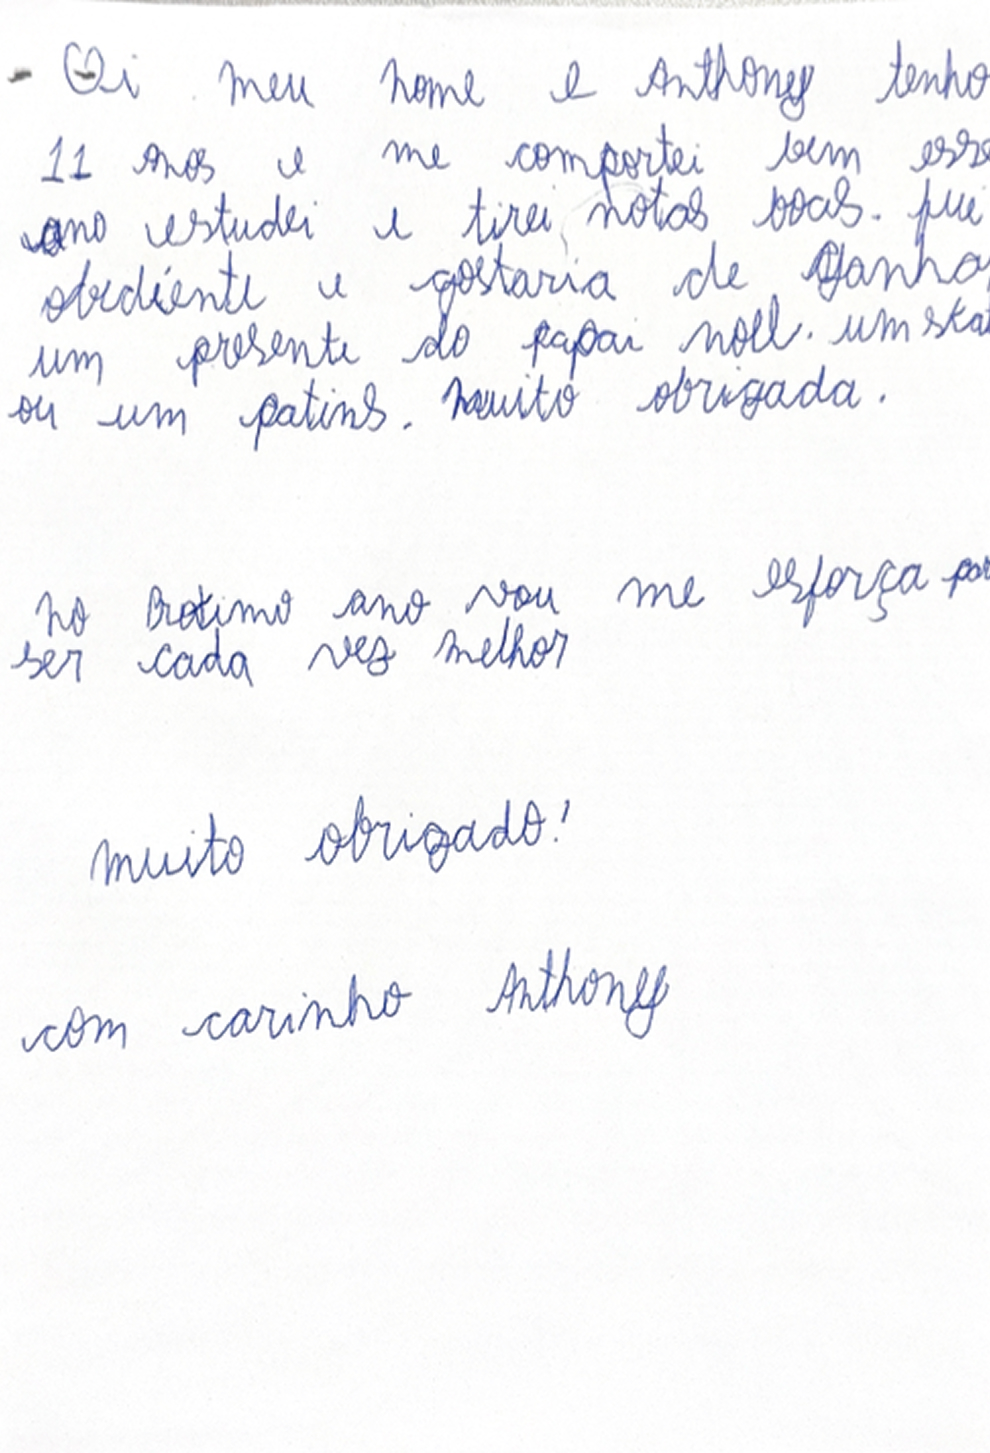 - Oi meu nome e Anthoney tenho
11 anos e me comportei bem esse
ano estudei e tirei notas boas. fui
obediénte e gostaria de ganha
um presente do papai noll. um skat
ou um patins. muito obrigada.
no Protimo ano vou me esforça par
ser cada vez melhor
muito obrigado!
com carinho Anthoney